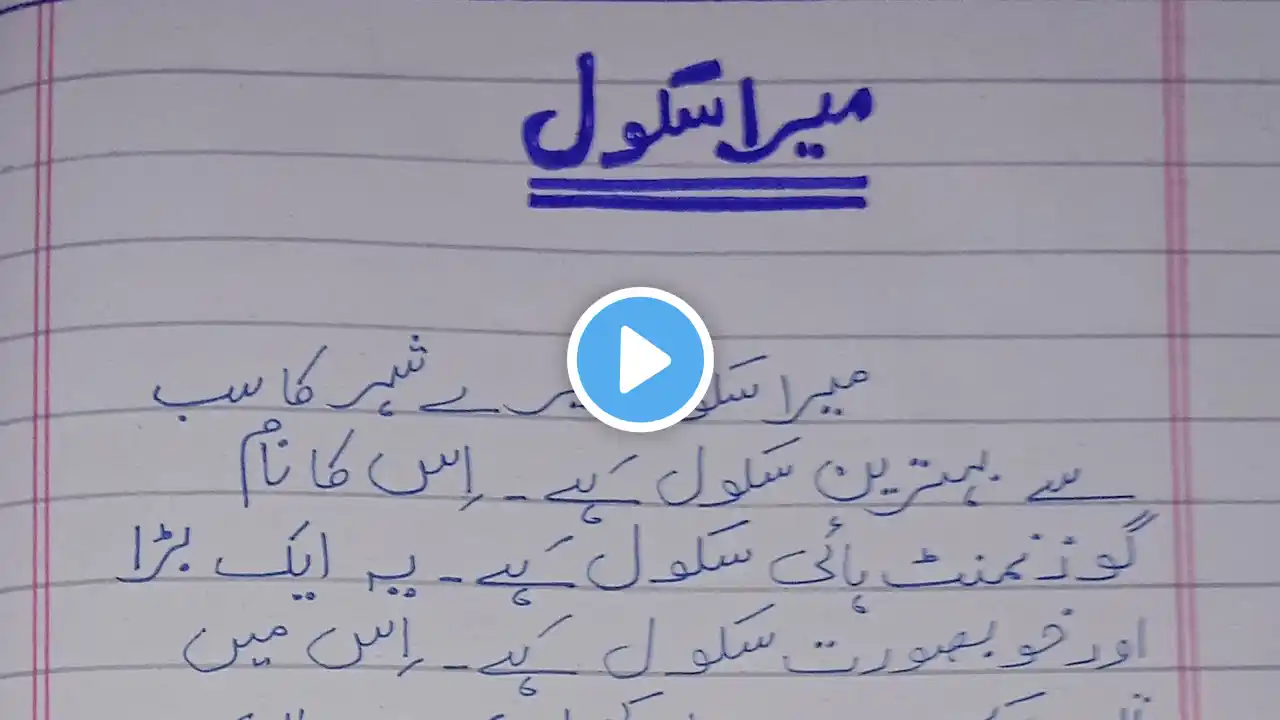 میرا سکول
میرا سکول شہر کا سب
سے بہترین سکول ہے۔ اِس کا نام
گوزنمنٹ ہائی سکول ہے۔ یہ ایک بڑا
اور خوبصورت سکول ہے۔ اِس میں